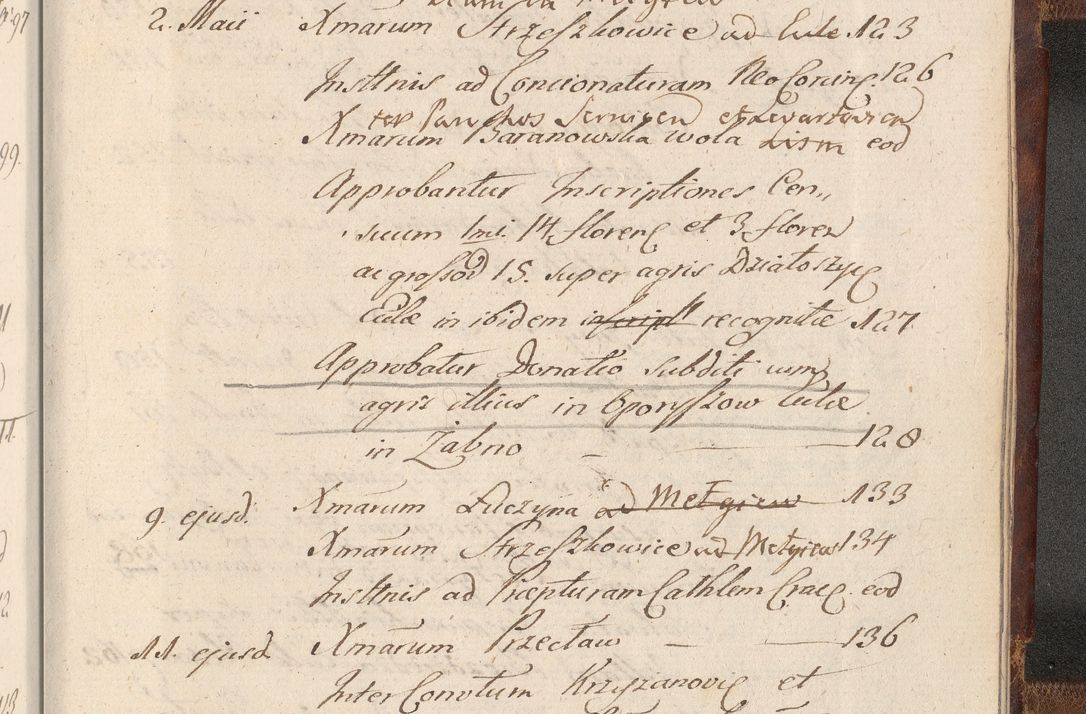 2. Maii Xmarum Strzeszkowice ad Eule 123
Insttnis ad Concionaturam NeoConinc. 126
ter Parochos Serniken et Lewartovien
Xmarum Baranowska wola eod
Approbantur Inscriptiones Cen„
suum 1mi. 14 florenc et 3 floren
ac grossod 15. super agris Działoszyc
Eulæ in ibidem inscript recognitæ 127
Approbatur Donatio subditi cum
agris illius in Oporyszow Eulæ
in Żabno — — 128
9. ejusd. Xmarum Łuczyna ad Mełgiew 133
Xmarum Strzeszkowice ad Mełgiew 134
Insttnis ad Præpturam Cathlem Crac. eod
11. ejusd. Xmarum Przecław — — 136
Inter Convtum Krzyzanovic et
97
99.